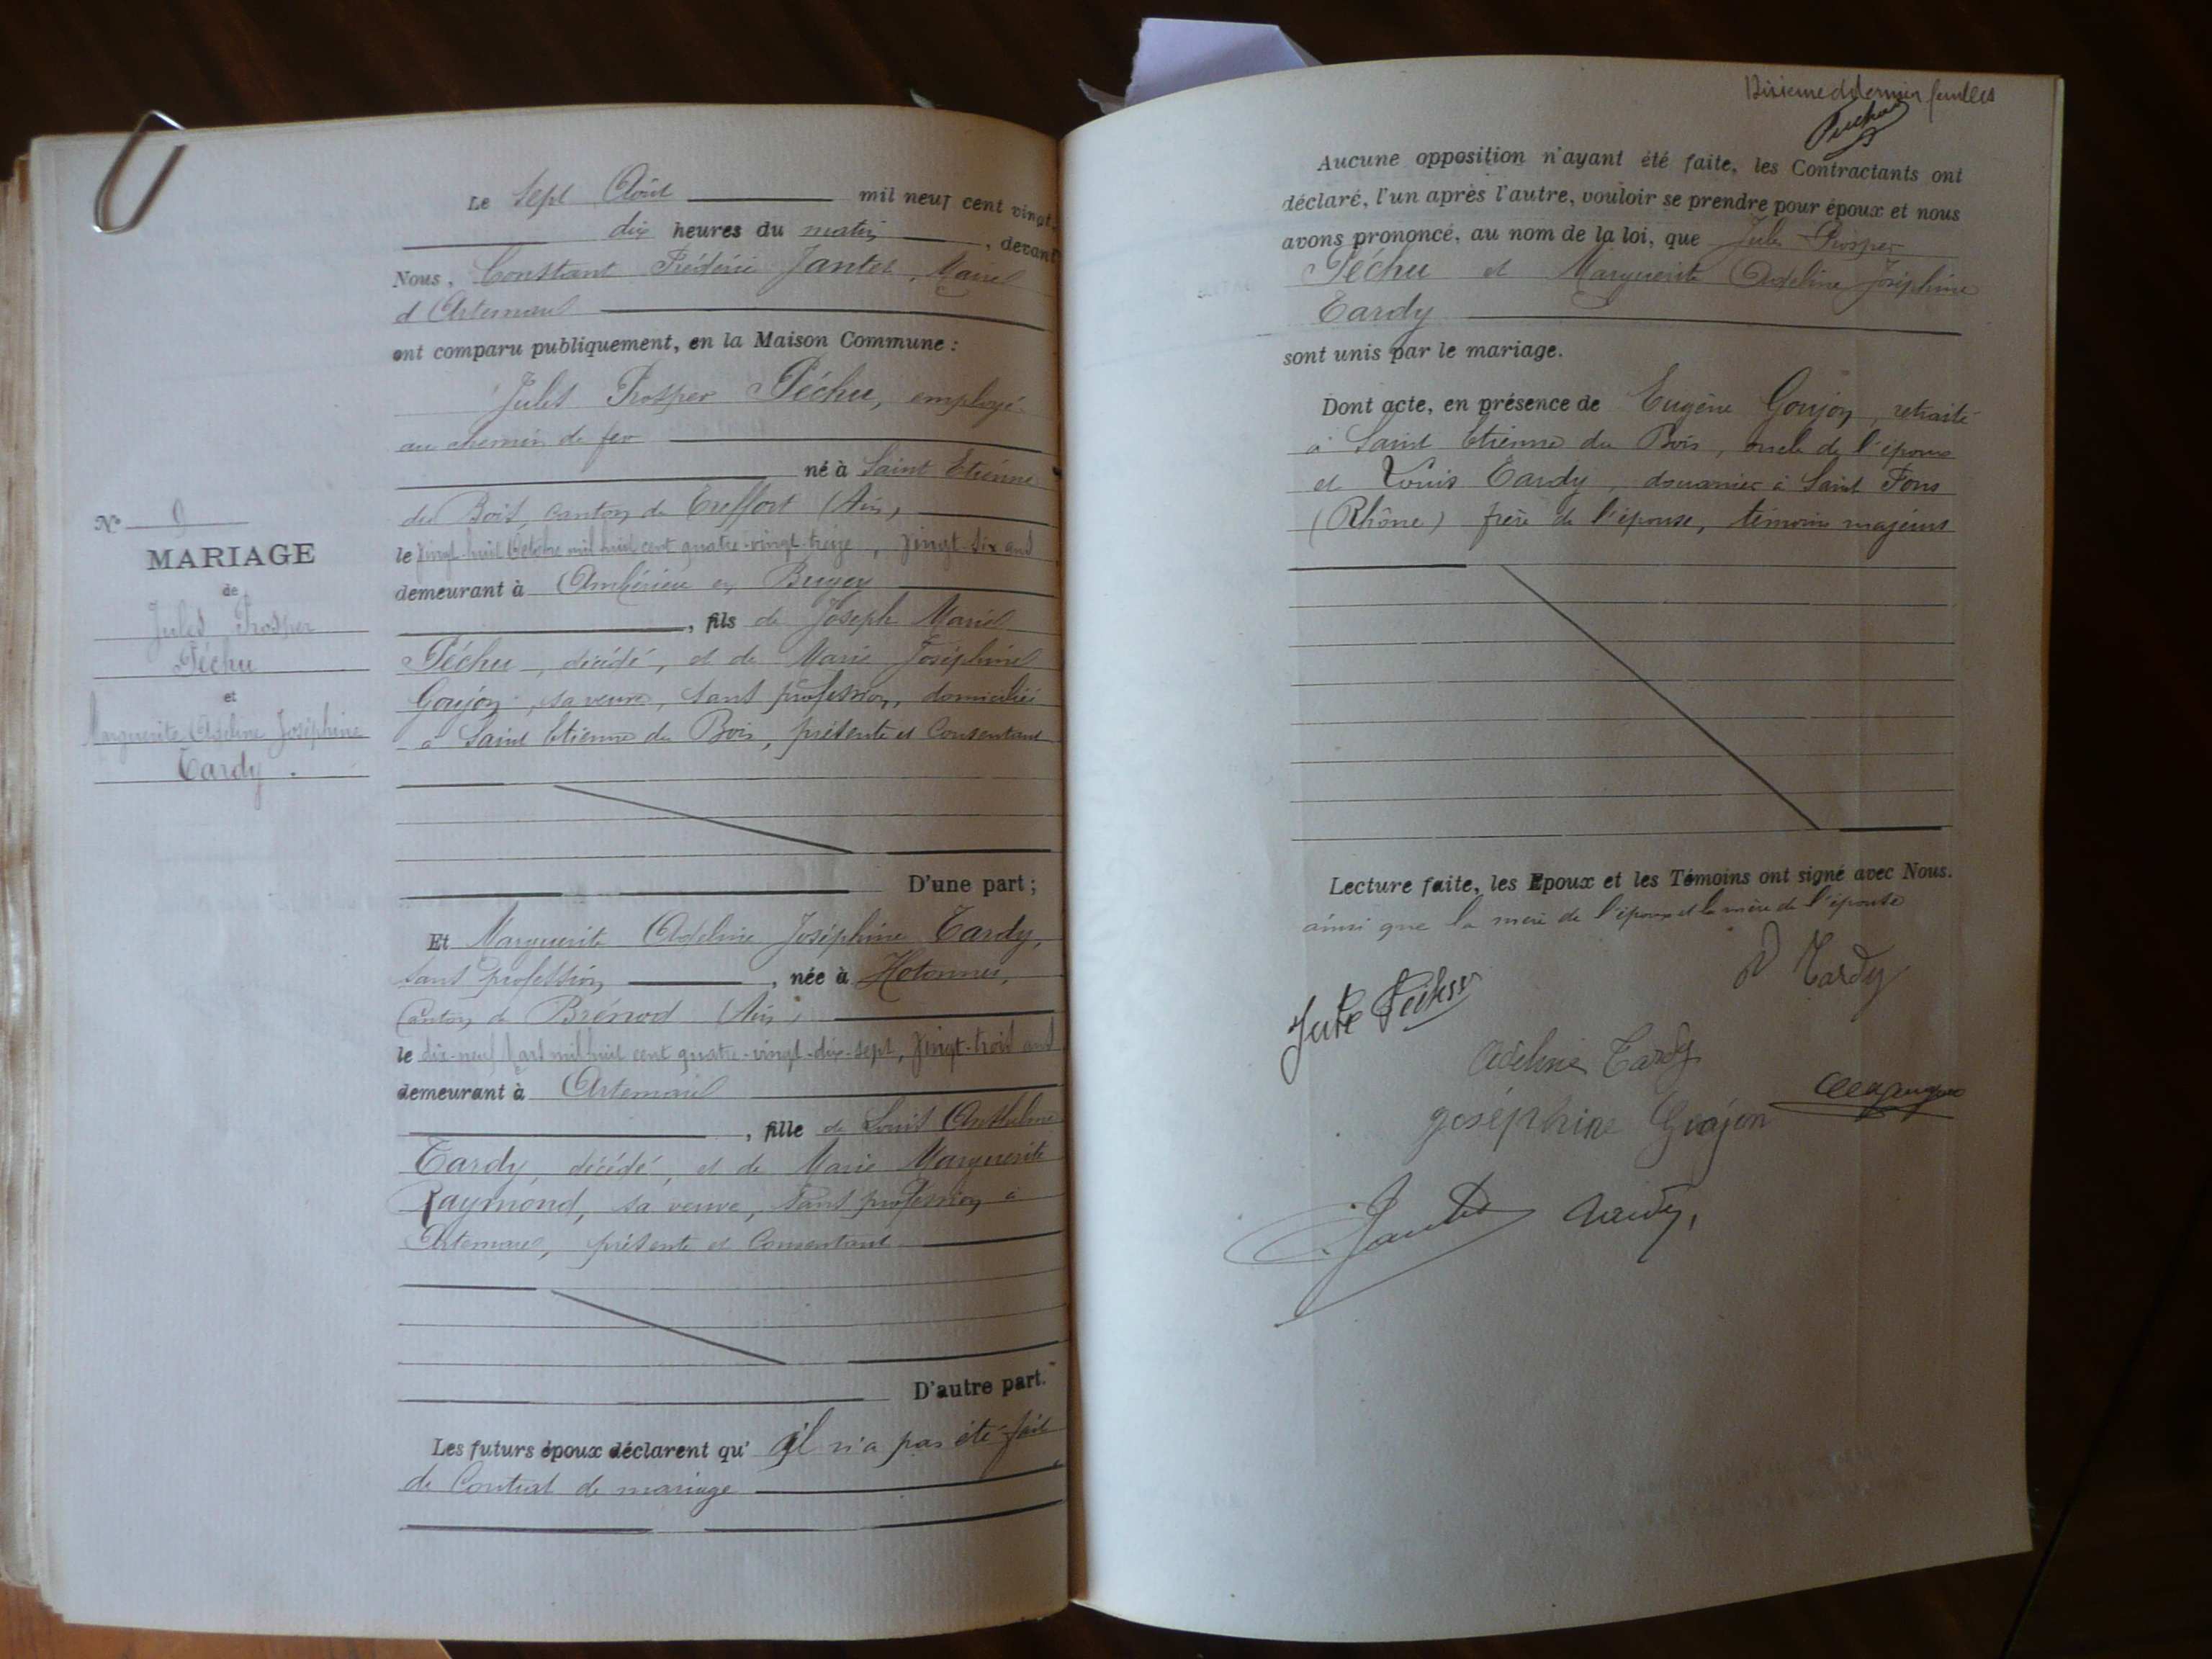 N° 9
MARIAGE
de
Jules Prosper
Péchu
et
Marguerite Adeline Joséphine
Tardy.
Le Sept Août mil neuf cent vingt,
dix heures du matin, devant
Nous, Constant Frédéric Jantet, Maire
d'Artemare
ont comparu publiquement, en la Maison Commune :
Jules Prosper Péchu, employé
au chemin de fer
né à Saint Etienne
du Bois, canton de Treffort (Ain)
le vingt-huit Octobre mil huit cent quatre-vingt-treize, vingt-six ans
demeurant à Ambérieu en Bugey
, fils de Joseph Marie
Péchu, décédé, et de Marie Joséphine
Goujon, sa veuve, sans profession, domiciliée
à Saint Etienne du Bois, présente et Consentant
D'une part ;
Et Marguerite Adeline Joséphine Tardy,
sans profession, née à Hotonnes,
Canton de Brénod (Ain)
le dix-neuf Mars mil huit cent quatre-vingt-dix-sept, vingt-trois ans
demeurant à Artemare
, fille de Louis Anthelme
Tardy, décédé, et de Marie Marguerite
Raymond, sa veuve, sans profession à
Artemare, présente et Consentant
D'autre part.
Les futurs époux déclarent qu' il n'a pas été fait
de Contrat de mariage
dernier feuillet
Aucune opposition n'ayant été faite, les Contractants ont
déclaré, l'un après l'autre, vouloir se prendre pour époux et nous
avons prononcé, au nom de la loi, que Jules Prosper
Péchu et Marguerite Adeline Joséphine
Tardy
sont unis par le mariage.
Dont acte, en présence de Eugène Goujon, retraité
à Saint Etienne du Bois, oncle de l'époux
et Louis Tardy, douanier à Saint Fons
(Rhône) frère de l'épouse, témoins majeurs
Lecture faite, les Epoux et les Témoins ont signé avec Nous.
ainsi que la mère de l'époux et la mère de l'épouse
Tardy
Jules Péchu
Adeline Tardy
Joséphine Goujon
Jantet Tardy,